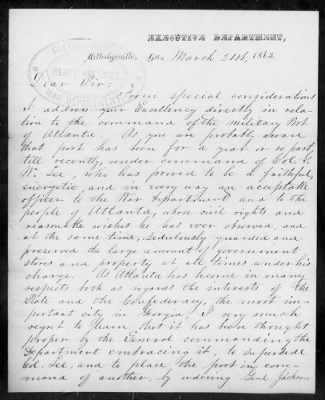 EXECUTIVE DEPARTMENT,
Milledgeville, Ga., March 21st, 1863.
Dear Sir:
From special considerations
I address your Excellency directly in rela-
tive to the command of the military Post
of Atlanta. As, you are probably aware
that post has been for a year or so past,
till recently, under command of Col. G.
W. Lee, who has proved to be a faithful,
energetic, and in every way an acceptable
officer to the War Department and to the
people of Atlanta, whose civil rights and
reasonable wishes he has ever observed, and
at the same time, sedulously guarded and
preserved the large amount of government
stores and property at all times under his
charge. As Atlanta has become in many
respects both as regards the interests of the
State and the Confederacy, the most im-
portant city in Georgia, I very much
regret to learn that it has been thought
proper by the General commanding the
Department embracing it, to supersede
Col. Lee, and to place the post in com-
mand of another, by ordering Genl. Jackson